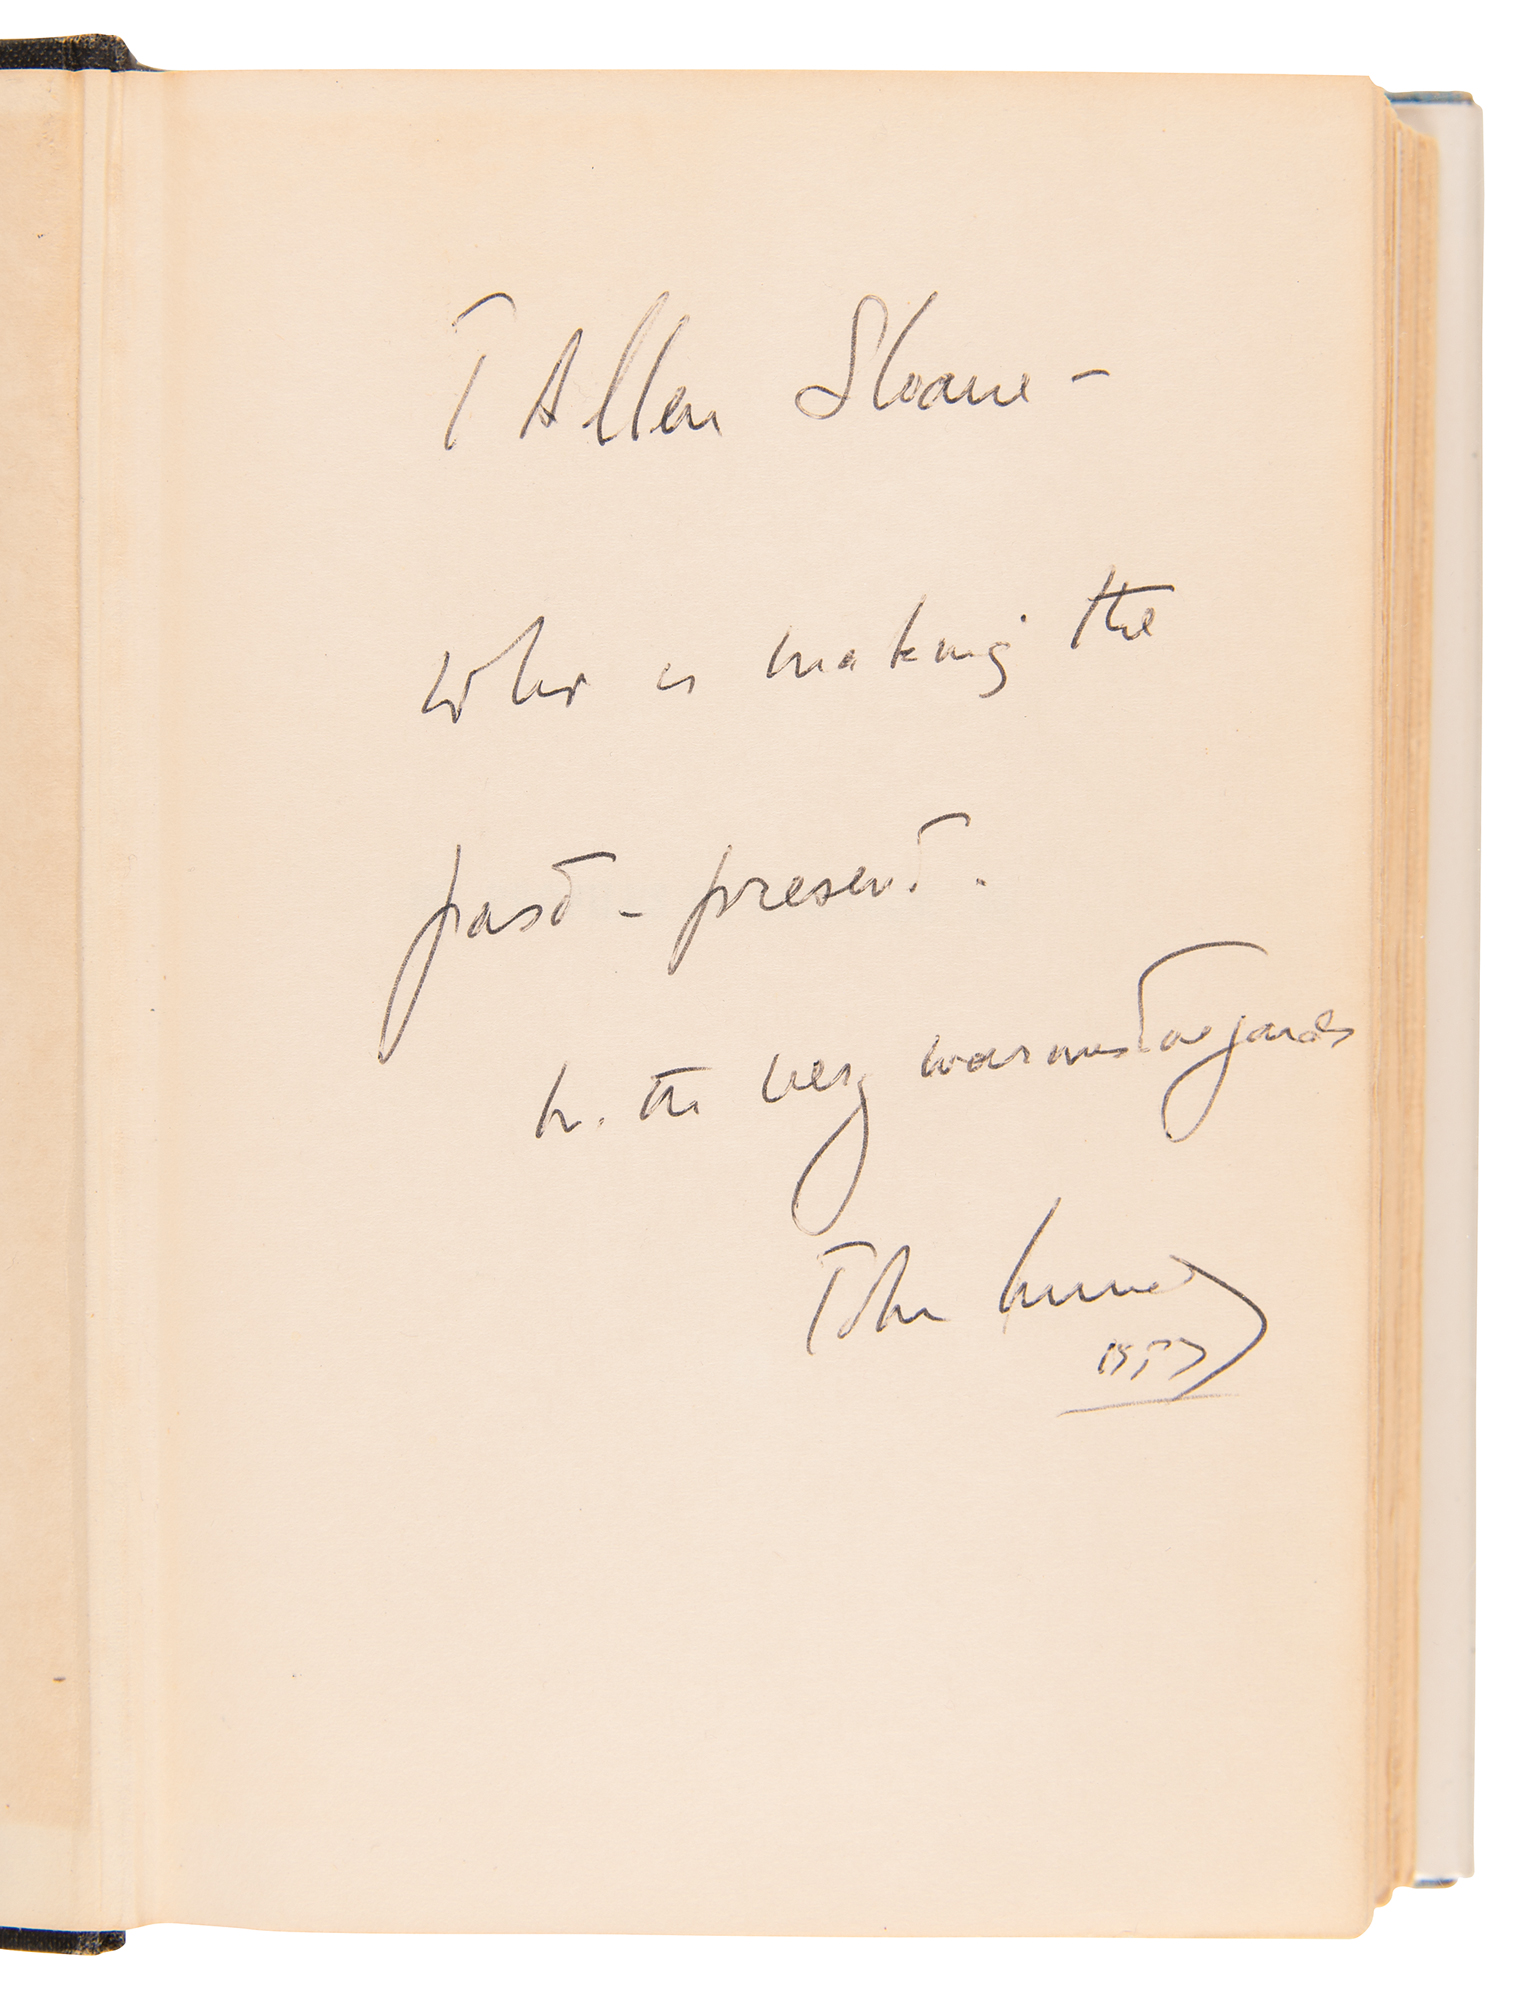 T Allen Sloane -
who is making the
past - present.
w. the very warmest regards
John Kennedy
1957